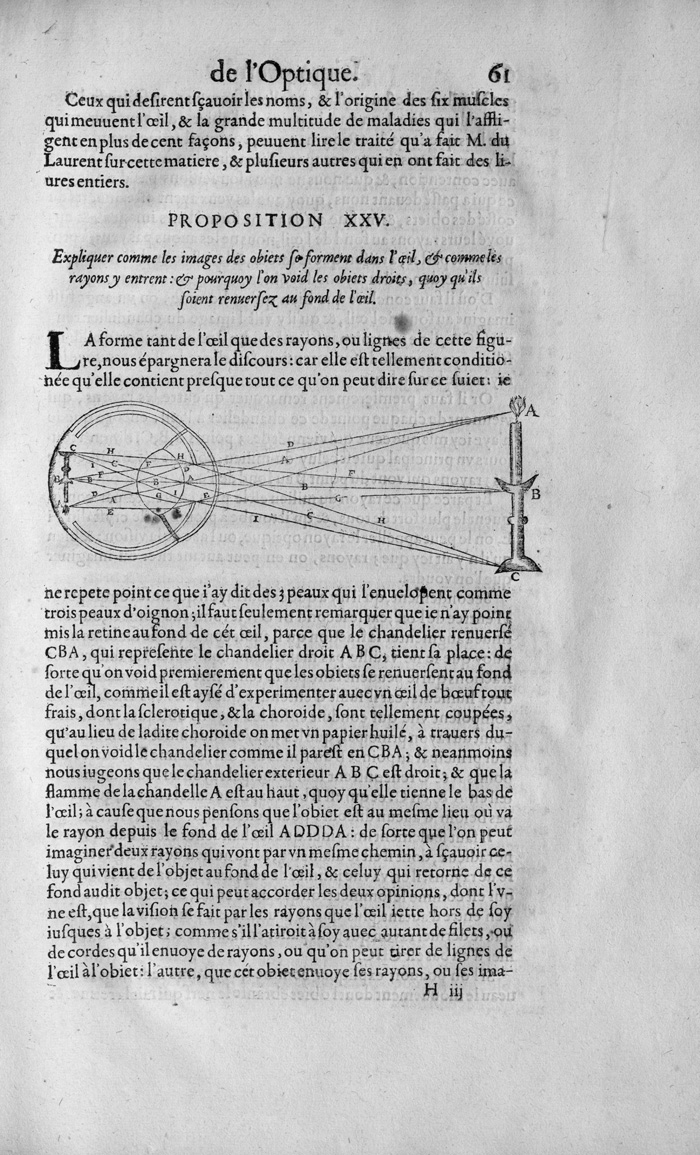 de l'Optique. 61
Ceux qui desirent sçauoir les noms, & l'origine des six muscles
qui meuuent l'œil, & la grande multitude de maladies qui l'affli-
gent en plus de cent façons, peuuent lire le traité qu'a fait M. du
Laurent sur cette matiere, & plusieurs autres qui en ont fait des li-
ures entiers.
PROPOSITION XXV.
Expliquer comme les images des obiets se forment dans l'œil, & comme les
rayons y entrent : & pourquoy l'on void les obiets droits, quoy qu'ils
soient renuersez au fond de l'œil.
LA forme tant de l'œil que des rayons, ou lignes de cette figu-
re, nous épargnera le discours : car elle est tellement conditio-
née qu'elle contient presque tout ce qu'on peut dire sur ce suiet : ie
C H I C F H D A B F B D A G I E E
D A F B G I C H
A
B
C
ne repete point ce que i'ay dit des 3 peaux qui l'enuelopent comme
trois peaux d'oignon ; il faut seulement remarquer que ie n'ay point
mis la retine au fond de cét œil, parce que le chandelier renuersé
CBA, qui represente le chandelier droit A B C, tient sa place : de
sorte qu'on void premierement que les obiets se renuersent au fond
de l'œil, comme il est aysé d'experimenter auec vn œil de bœuf tout
frais, dont la sclerotique, & la choroide, sont tellement coupées,
qu'au lieu de ladite choroide on met vn papier huilé, à trauers du-
quel on void le chandelier comme il parest en CBA ; & neanmoins
nous iugeons que le chandelier exterieur A B C est droit ; & que la
flamme de la chandelle A est au haut, quoy qu'elle tienne le bas de
l'œil ; à cause que nous pensons que l'obiet est au mesme lieu où va
le rayon depuis le fond de l'œil ADDDA : de sorte que l'on peut
imaginer deux rayons qui vont par vn mesme chemin, à sçauoir ce-
luy qui vient de l'objet au fond de l'œil, & celuy qui retorne de ce
fond audit objet ; ce qui peut accorder les deux opinions, dont l'v-
ne est, que la vision se fait par les rayons que l'œil iette hors de soy
iusques à l'objet ; comme s'il l'atiroit à soy auec autant de filets, ou
de cordes qu'il enuoye de rayons, ou qu'on peut tirer de lignes de
l'œil à l'obiet : l'autre, que cét obiet enuoye ses rayons, ou ses ima-
H iij